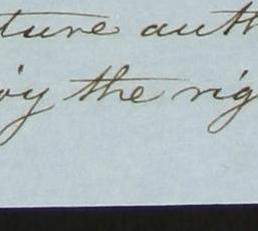 ture auth
oy the rig